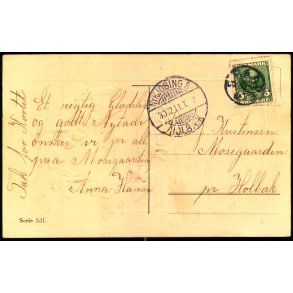 Tak for Kortet
Et rigtig Glædelig
og godt Nytaar
ønsker vi jer alle
paa Mosegaarden
Anna Hansen
Serie 531.
NYKJØBING S
30.12.11
HOLBÆK
DANMARK
5
ØRE
Kustensen
Mosegaarden
pr Holbæk